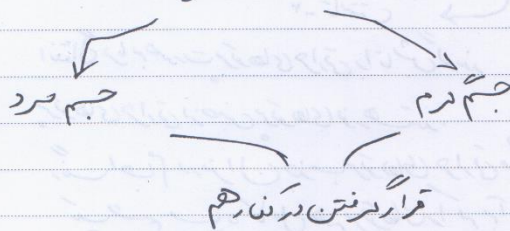 جسم گرم
جسم سرد
قرار گرفتن در کنار هم